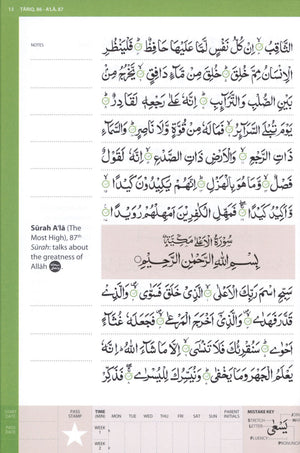 13 TĀRIQ, 86 - A'LĀ, 87
NOTES
الثَّاقِبُ ۝ اِنْ كُلُّ نَفْسٍ لَّمَّا عَلَيْهَا حَافِظٌ ۝ فَلْيَنْظُرِ
الْاِنْسَانُ مِمَّ خُلِقَ ۝ خُلِقَ مِنْ مَّآءٍ دَافِقٍ ۝ يَّخْرُجُ مِنْ
بَيْنِ الصُّلْبِ وَالتَّرَآئِبِ ۝ اِنَّهٗ عَلٰى رَجْعِهٖ لَقَادِرٌ ۝
يَوْمَ تُبْلَى السَّرَآئِرُ ۝ فَمَا لَهٗ مِنْ قُوَّةٍ وَّلَا نَاصِرٍ ۝ وَالسَّمَآءِ
ذَاتِ الرَّجْعِ ۝ وَالْاَرْضِ ذَاتِ الصَّدْعِ ۝ اِنَّهٗ لَقَوْلٌ
فَصْلٌ ۝ وَّمَا هُوَ بِالْهَزْلِ ۝ اِنَّهُمْ يَكِيْدُوْنَ كَيْدًا ۝
وَّاَكِيْدُ كَيْدًا ۝ فَمَهِّلِ الْكٰفِرِيْنَ اَمْهِلْهُمْ رُوَيْدًا ۝
Sūrah A'lā (The
Most High), 87th
Sūrah: talks about
the greatness of
Allāh
سُوْرَةُ الْاَعْلٰى مَكِّيَّةٌ
بِسْمِ اللّٰهِ الرَّحْمٰنِ الرَّحِيْمِ
سَبِّحِ اسْمَ رَبِّكَ الْاَعْلَى ۝ الَّذِيْ خَلَقَ فَسَوّٰى ۝ وَالَّذِيْ
قَدَّرَ فَهَدٰى ۝ وَالَّذِيْٓ اَخْرَجَ الْمَرْعٰى ۝ فَجَعَلَهٗ غُثَآءً
اَحْوٰى ۝ سَنُقْرِئُكَ فَلَا تَنْسٰٓى ۝ اِلَّا مَا شَآءَ اللّٰهُ ؕ اِنَّهٗ
يَعْلَمُ الْجَهْرَ وَمَا يَخْفٰى ۝ وَنُيَسِّرُكَ لِلْيُسْرٰى ۝ فَذَكِّرْ
START DATE
PASS DATE
PASS STAMP
TIME (MIN) MON TUE WED THU FRI SAT SUN
WEEK 1
WEEK 2
PARENT INITIALS
MISTAKE KEY
STRETCH
LETTER
FLUENCY
يَسْعٰى